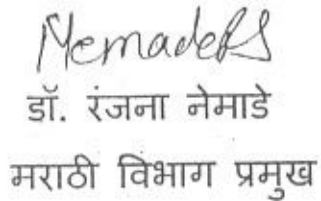 NemadeRS
डॉ. रंजना नेमाडे
मराठी विभाग प्रमुख